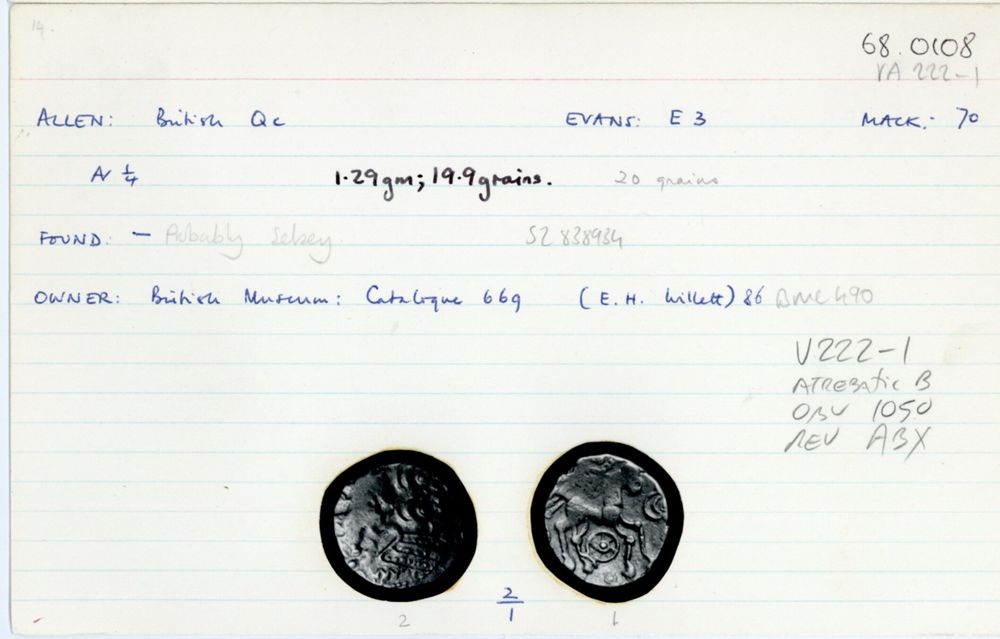 14.
68.0108
VA 222-1
ALLEN: British Qc EVANS: E 3 MACK: 70
AV 1/4 1.29gm; 19.9grains. 20 grains
FOUND: — Probably Selsey. SZ 838934
OWNER: British Museum: Catalogue 669 (E. H. Willett) 86 BMC 490
V222-1
ATREBATIC B
OBV 1050
REV ABX
2/1
2 1